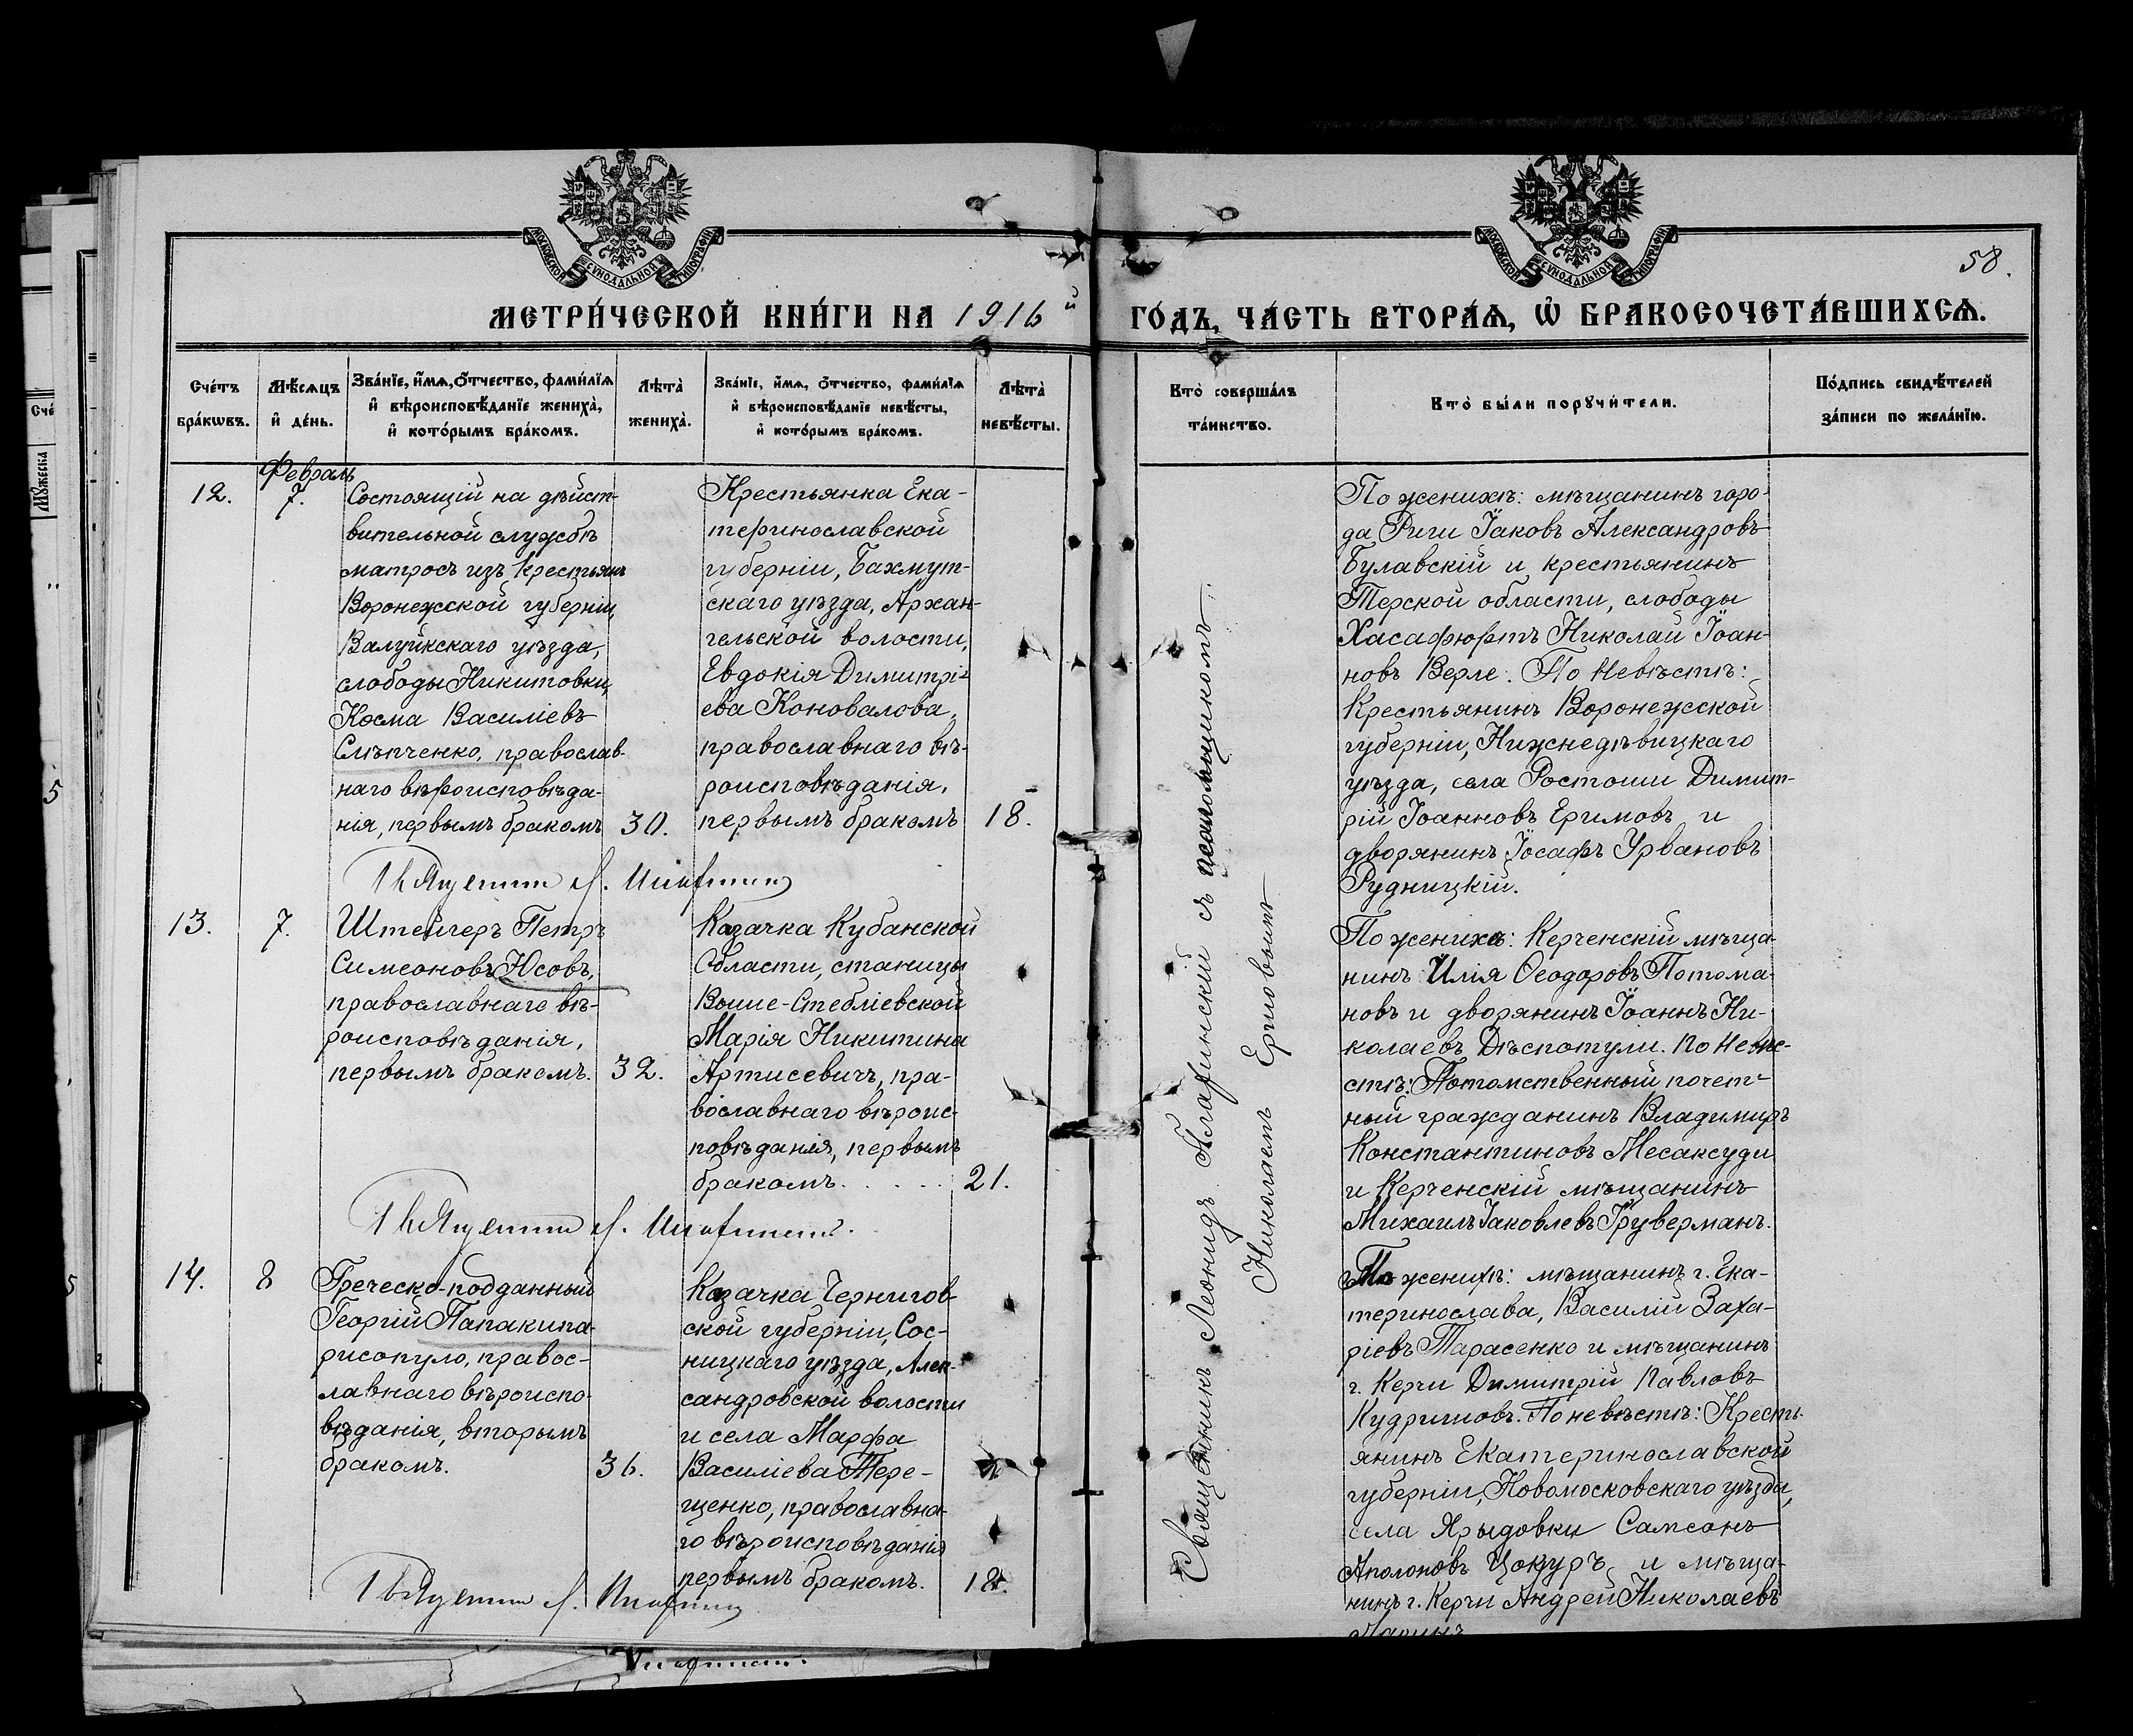 58.
МОСКОВСКОЙ СѴНОДАЛЬНОЙ ТИПОГРАФІИ
МОСКОВСКОЙ СѴНОДАЛЬНОЙ ТИПОГРАФІИ
МЕТРИ́ЧЕСКОЙ КНИ́ГИ НА 1916й ГО́ДЪ, ЧА́СТЬ ВТОРА́Ѧ, Ѡ БРАКОСОЧЕТА́ВШИХСѦ.
Сче́тъ бра́кѡвъ.
Мѣ́сѧцъ и҆ де́нь.
Зва́нїе, и҆́мѧ, ѻ҆́тчество, фами́лїѧ
и҆ вѣроисповѣ́данїе жениха̀,
и҆ кото́рымъ бра́комъ.
Лѣта̀ жениха̀.
Зва́нїе, и҆́мѧ, ѻ҆́тчество, фами́лїѧ
и҆ вѣроисповѣ́данїе невѣ́сты,
и҆ кото́рымъ бра́комъ.
Лѣта̀ невѣ́сты.
Кто̀ соверша́лъ та́инство.
Кто̀ бы́ли порꙋчи́тели.
По́дпись свидѣ́телей
за́писи по жела́нїю.
12.
Февраль
7.
Состоящій на дѣйст-
вительной службѣ
матросъ изъ крестьянъ
Воронежской губерніи,
Валуйкскаго уѣзда,
слободы Никитовки,
Косма Василіевъ
Слѣпченко, православ-
наго вѣроисповѣда-
нія, первымъ бракомъ
30.
Крестьянка Ека-
теринославской
губерніи, Бахмут-
скаго уѣзда, Архан-
гельской волости,
Евдокія Димитрі-
ева Коновалова,
православнаго вѣ-
роисповѣданія,
первымъ бракомъ
18.
По женихѣ: мѣщанинъ горо-
да Риги Іаковъ Александровъ
Булавскій и крестьянинъ
Терской области, слободы
Хасафюртъ Николай Іоан-
новъ Верле. По невѣстѣ:
Крестьянинъ Воронежской
губерніи, Нижнедѣвицкаго
уѣзда, села Ростоши Димит-
рій Іоанновъ Еримовъ и
дворянинъ Іосафъ Урвановъ
Рудницкій.
13.
7.
Штейгеръ Петръ
Симеоновъ Юсовъ,
православнаго вѣ-
роисповѣданія,
первымъ бракомъ.
32.
Казачка Кубанской
Области, станицы
Выше-Стебліевской
Марія Никитина
Артисевичъ, пра-
вославнаго вѣроис-
повѣданія, первымъ
бракомъ. . . . . .
21.
По женихѣ: Керченскій мѣща-
нинъ Илія Ѳеодоровъ Потома-
новъ и дворянинъ Іоаннъ Ни-
колаевъ Дѣспотули. По невѣ-
стѣ: Потомственный почет-
ный гражданинъ Владимиръ
Константиновъ Месаксуди
и Керченскій мѣщанинъ
Михаилъ Іаковлевъ Груверманъ.
14.
8
Греческо-подданный
Георгій Папакипа-
рисопуло, правос-
лавнаго вѣроиспо-
вѣданія, вторымъ
бракомъ.
36.
Казачка Чернигов-
ской губерніи, Сос-
ницкаго уѣзда, Алек-
сандровской волости
и села Марфа
Василіева Тере-
щенко, православна-
го вѣроисповѣданія
первымъ бракомъ.
18.
По женихѣ: мѣщанинъ г. Ека-
теринослава, Василій Заха-
ріевъ Тарасенко и мѣщанинъ
г. Керчи Димитрій Павловъ
Кудримовъ. По невѣстѣ: Кресть-
янинъ Екатеринославской
губерніи, Новомосковскаго уѣзда,
села Ярыдовки Самсонъ
Аполоновъ Цокуръ и мѣща-
нинъ г. Керчи Андрей Николаевъ
Священникъ Леонидъ с псаломщикомъ
Николаемъ